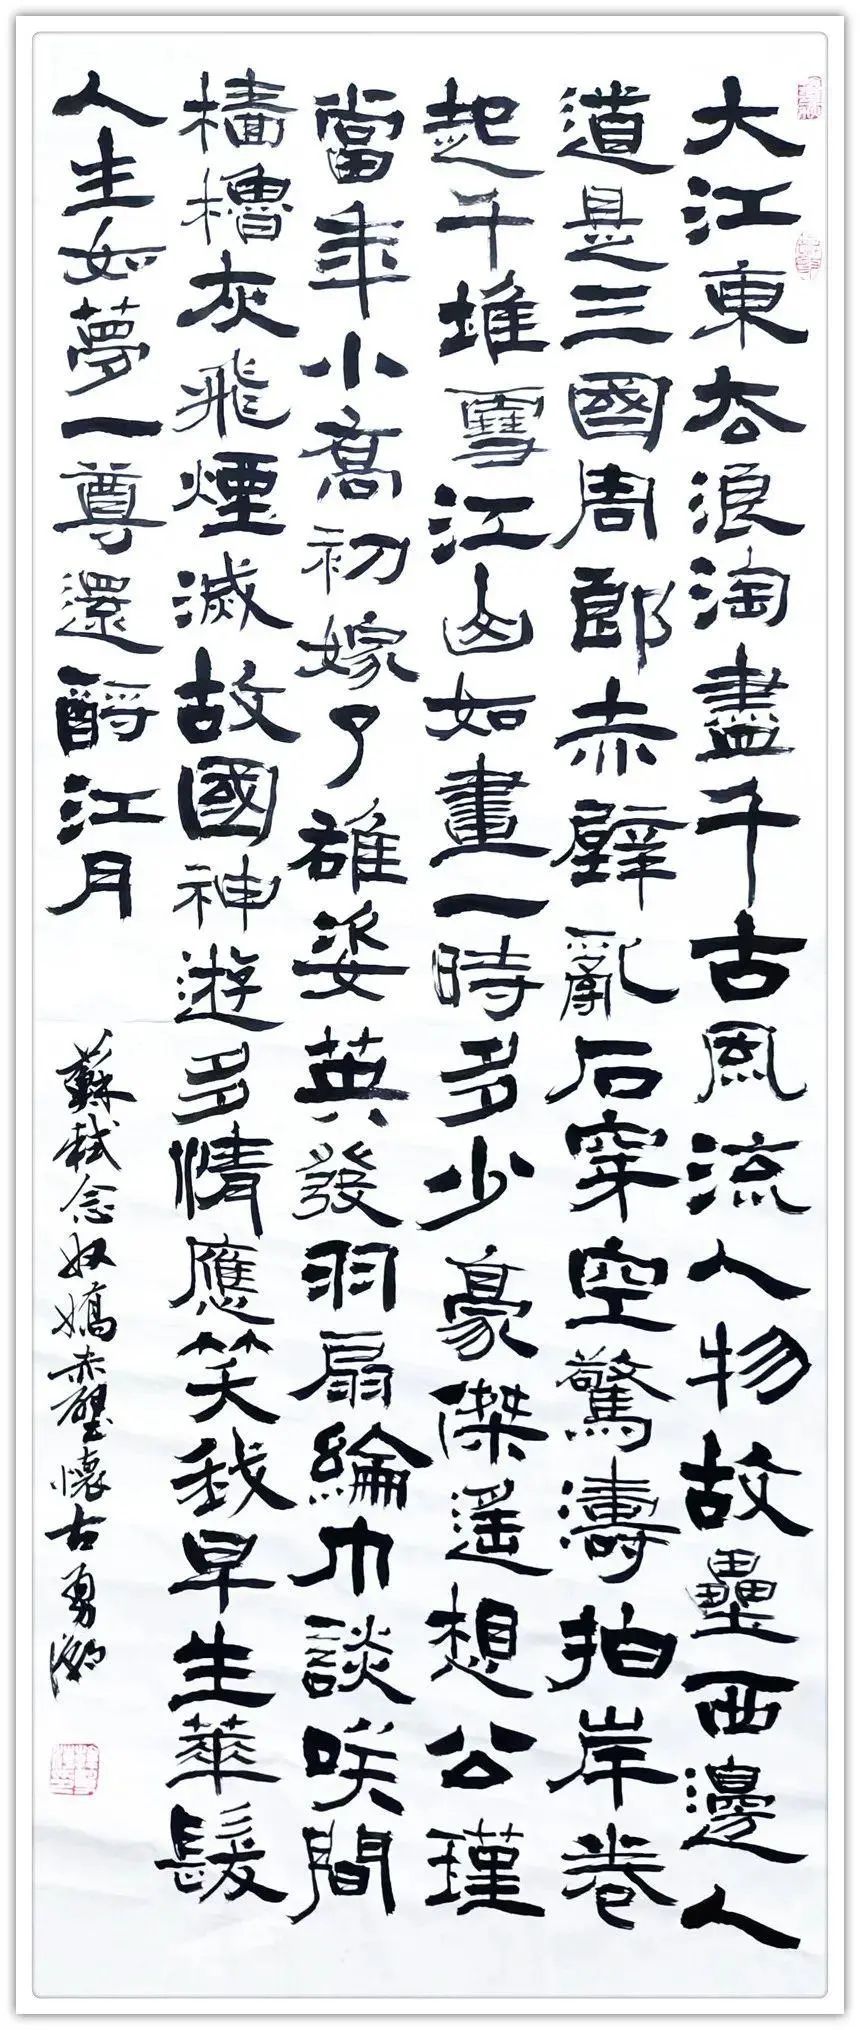 大江東去浪淘盡千古風流人物故壘西邊人
道是三國周郎赤壁亂石穿空驚濤拍岸卷
起千堆雪江山如畫一時多少豪傑遙想公瑾
當年小喬初嫁了雄姿英發羽扇綸巾談咲間
檣櫓灰飛煙滅故國神遊多情應笑我早生華髮
人生如夢一尊還酹江月
蘇軾念奴嬌赤壁懷古勇